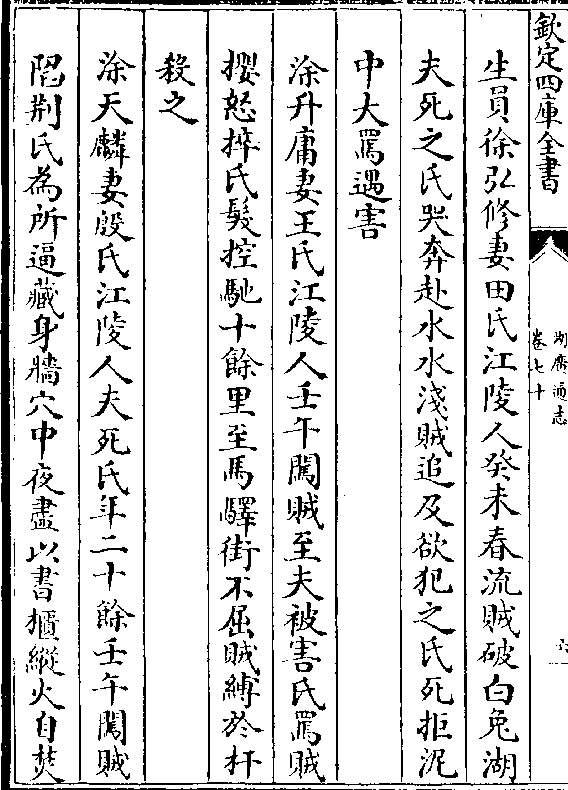 欽定四庫全書
湖廣通志
卷七十
六
生員徐弘修妻田氏江陵人癸未春流賊破白兔湖
夫死之氏哭奔赴水水淺賊追及欲犯之氏死拒泥
中大罵遇害
涂升庸妻王氏江陵人壬午闖賊至夫被害氏罵賊
攖怒捽氏髮控馳十餘里至馬驛街不屈賊縛於杆
殺之
涂天麟妻殷氏江陵人夫死氏年二十餘壬午闖賊
陷荆氏為所逼藏身牆穴中夜盡以書櫃縱火自焚